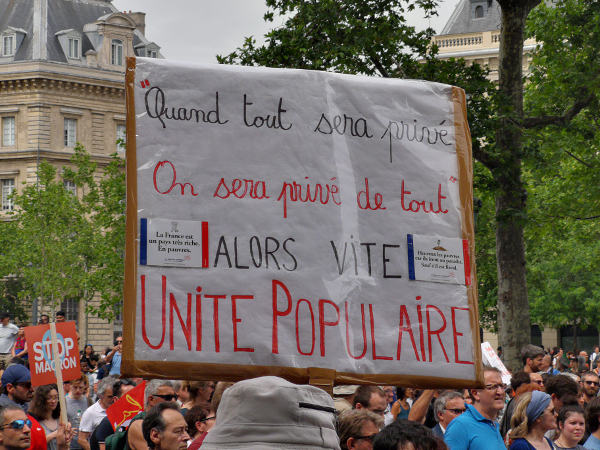 "Quand tout sera privé
On sera privé de tout"
La France est
un pays très riche.
En pauvres.
ALORS VITE
Heureux les pauvres
UNITE POPULAIRE
STOP
MACRON